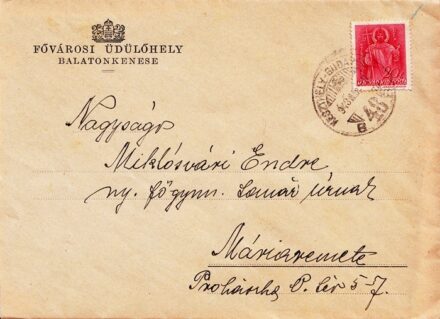 FŐVÁROSI ÜDÜLŐHELY
BALATONKENESE
KESZTHELY-BUDA
48
B
20
Nagyságo
Miklósvári Endre
ny. főgymn. tanár úrnak
Máriaremete
Prohászka O. tér 5-7.